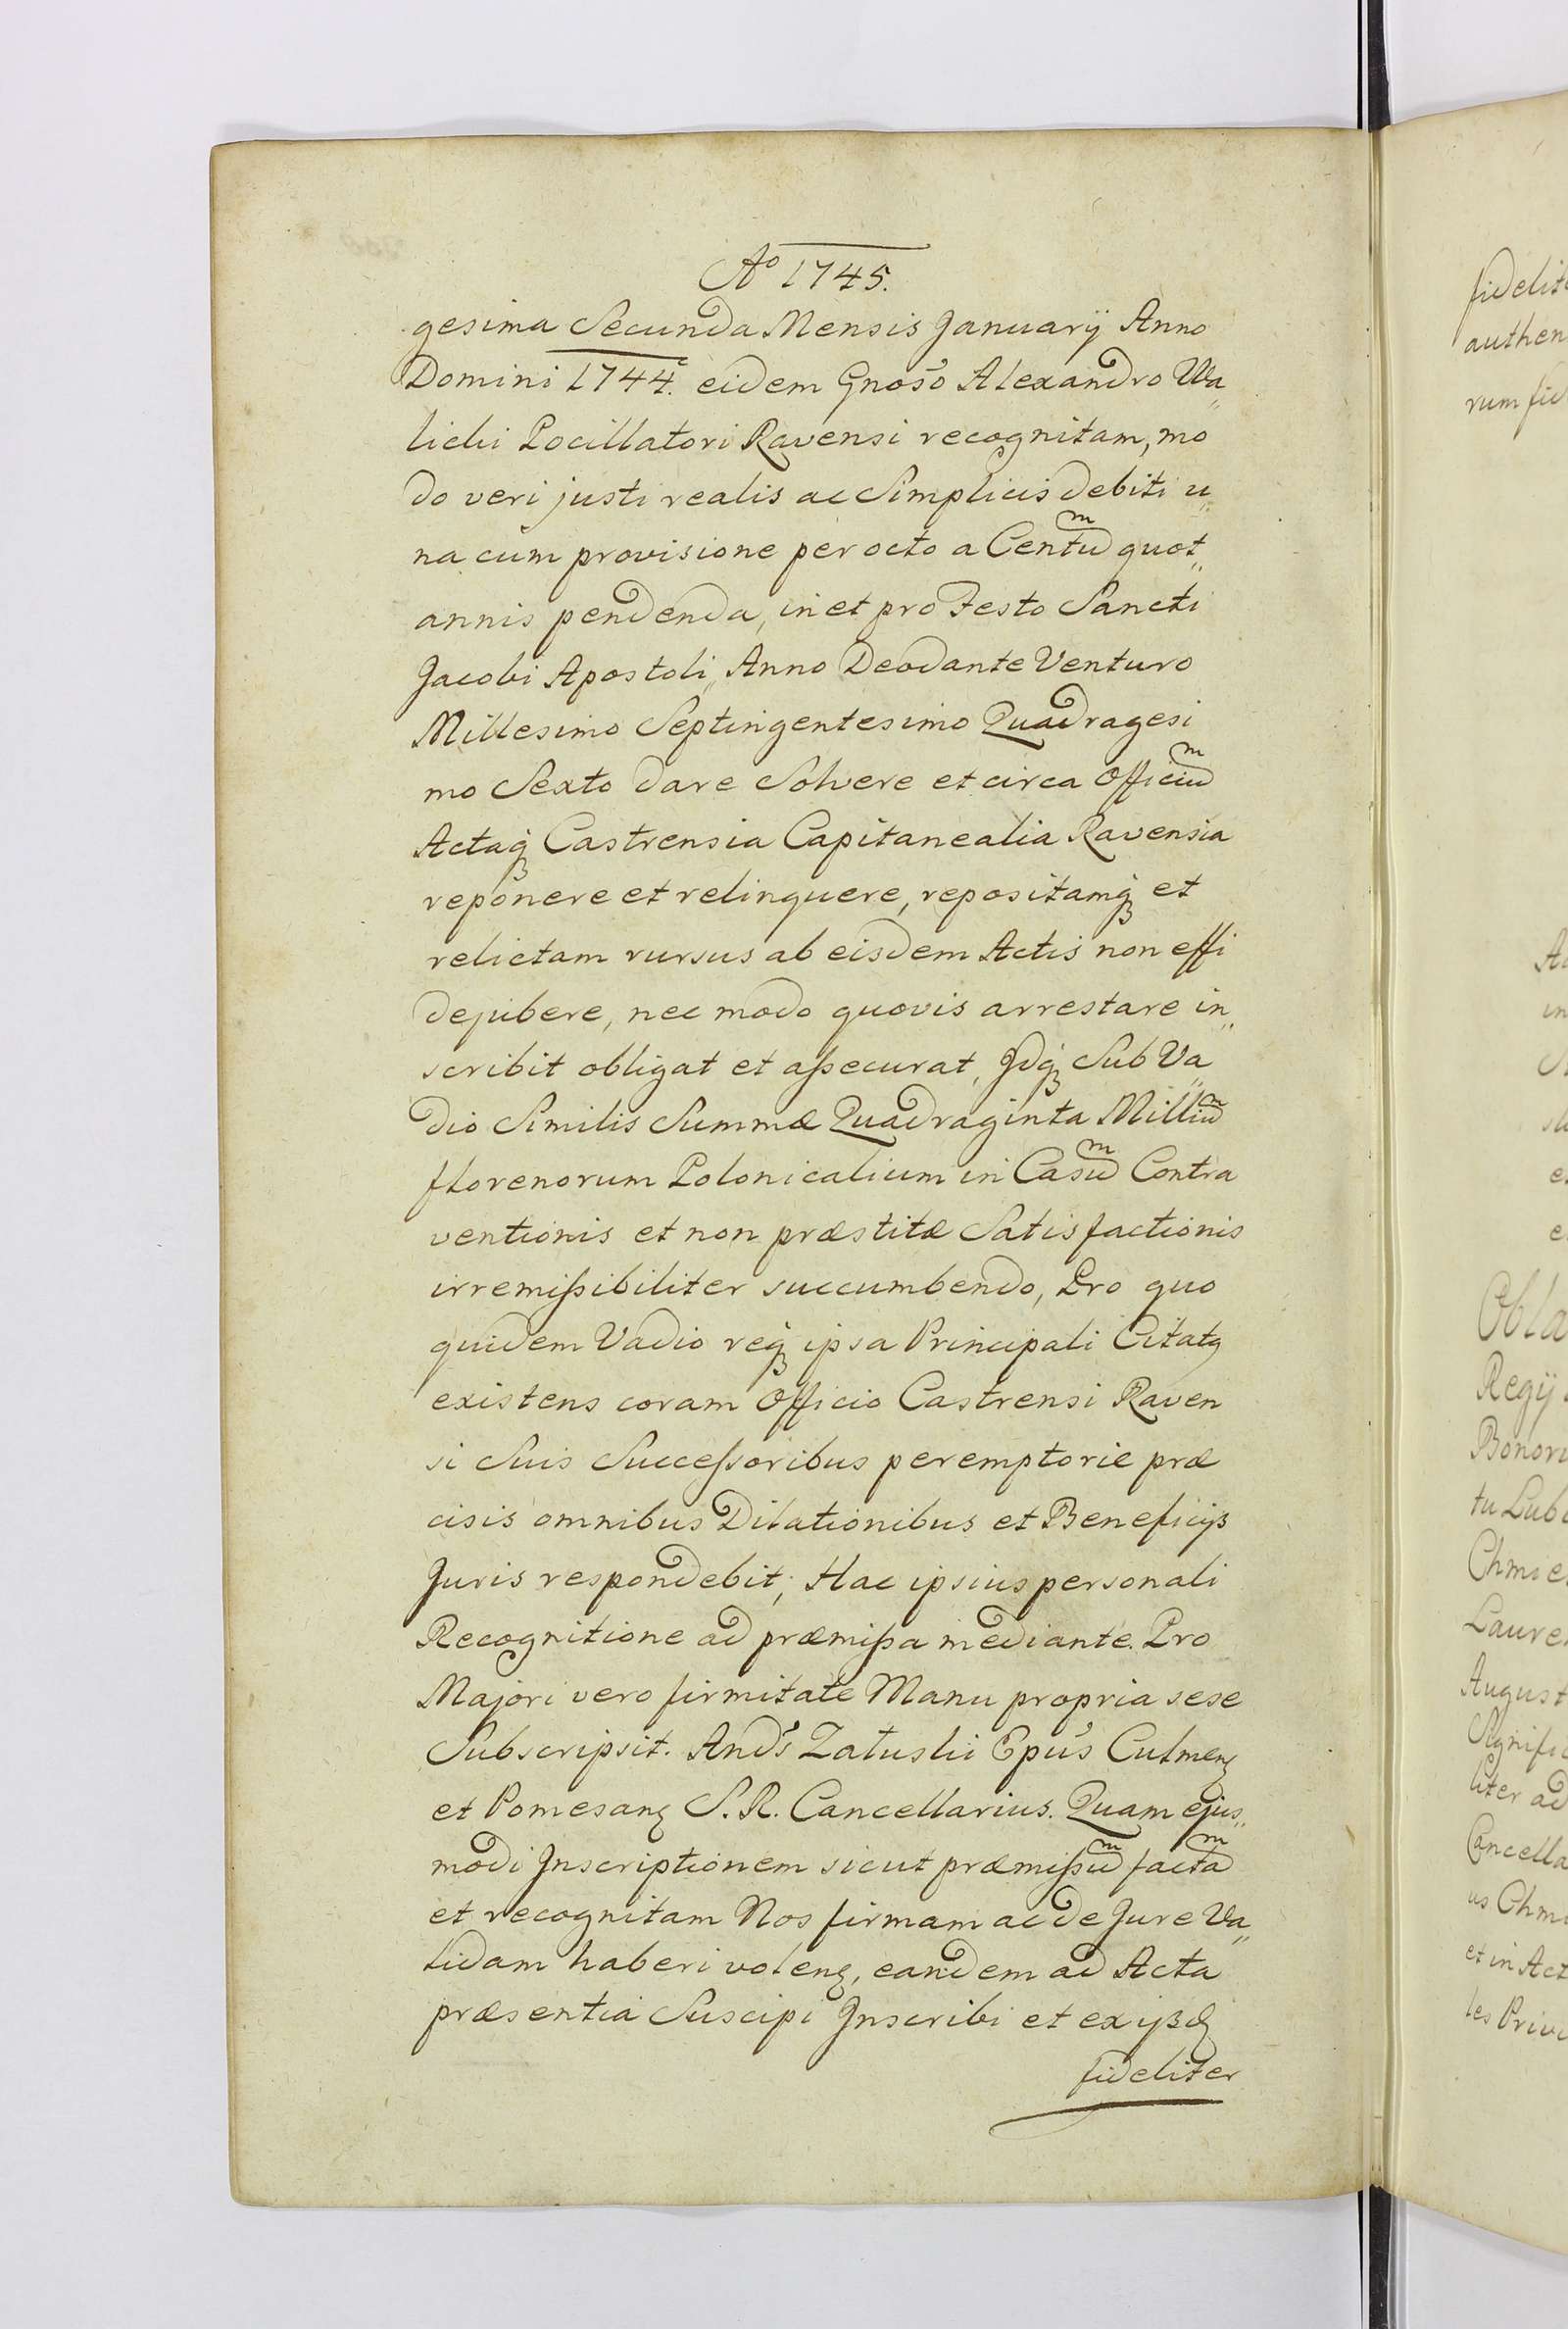 Aº 1745.
gesima Secunda Mensis Januarij Anno
Domini 1744. eidem Gnoso Alexandro Wa„
lichi Pocillatori Ravensi recognitam, mo
do veri justi realis ac Simplicis debiti u„
na cum provisione per octo a Centum quot„
annis pendenda, in et pro Festo Sancti
Jacobi Apostoli, Anno Deodante Venturo
Millesimo Septingentesimo Quadragesi
mo Sexto dare Solvere et circa Officium
Actaq₃ Castrensia Capitanealia Ravensia
reponere et relinquere, repositamq₃ et
relictam rursus ab eisdem Actis non effi
dejubere, nec modo quovis arrestare in„
scribit obligat et aßecurat, Jdq₃ Sub Va„
dio Similis Summæ Quadraginta Millium
florenorum Polonicalium in Casum Contra
ventionis et non præstitæ Satisfactionis
irremißibiliter succumbendo, Pro quo
quidem Vadio req₃ ipsa Principali Citatꝫ
existens coram Officio Castrensi Raven
si Suis Succeßoribus peremptorie præ
cisis omnibus Dilationibus et Beneficijs
Juris respondebit; Hac ipsius personali
Recognitione ad præmißa mediante. Pro
Majori vero firmitate Manu propria sese
Subscripsit. Andˢ Zatuski Epus Culmenꝫ
et Pomesanꝫ S. R. Cancellarius. Quam ejus„
modi Jnscriptionem sicut præmißum factam
et recognitam Nos firmam ac de Jure Va„
lidam haberi volenꝫ, eandem ad Acta
præsentia Suscipi Jnscribi et ex ijsdꝫ
fideliter
fidelit
authen
rum fid
Obla
Regij
Bonoru
tu Lub
Chmie
Lauren
August
Signific
liter ad
Cancella
us Chmi
et in Act
les Privi